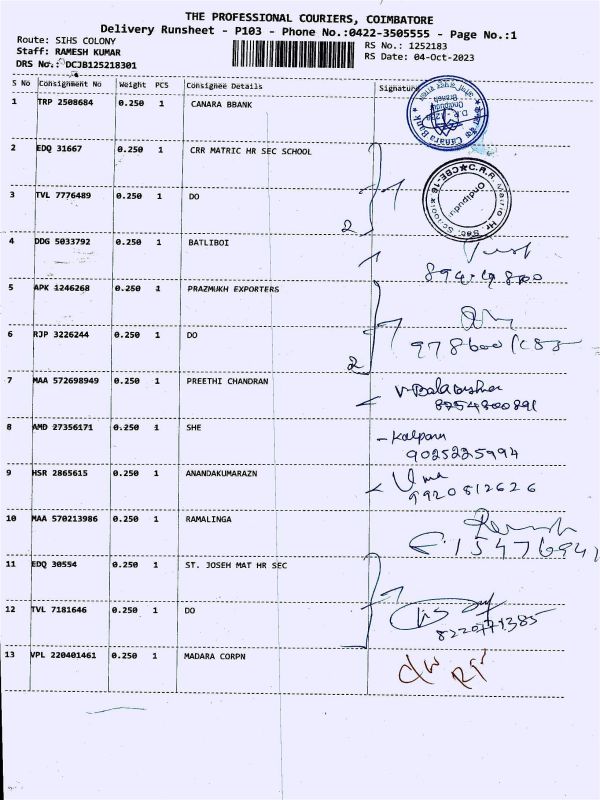 THE PROFESSIONAL COURIERS, COIMBATORE
Delivery Runsheet - P103 - Phone No.:0422-3505555 - Page No.:1
Route: SIHS COLONY
Staff: RAMESH KUMAR
DRS No.: DCJB125218301
RS No.: 1252183
RS Date: 04-Oct-2023
S No Consignment No Weight PCS Consignee Details Signature
1 TRP 2508684 0.250 1 CANARA BBANK
Canara Bank
2 EDQ 31667 0.250 1 CRR MATRIC HR SEC SCHOOL
C.R.R. Matric Hr. Sec. School CBE-16
Ondipudur
3 TVL 7776489 0.250 1 DO
2
4 DDG 5033792 0.250 1 BATLIBOI
5 APK 1246268 0.250 1 PRAZMUKH EXPORTERS
6 RJP 3226244 0.250 1 DO
2
7 MAA 572698949 0.250 1 PREETHI CHANDRAN
8754800891
8 AMD 27356171 0.250 1 SHE
- Kalpana
9025225994
9 HSR 2865615 0.250 1 ANANDAKUMARAZN
Uma
9920812626
10 MAA 570213986 0.250 1 RAMALINGA
11 EDQ 30554 0.250 1 ST. JOSEH MAT HR SEC
12 TVL 7181646 0.250 1 DO
8220771385
13 VPL 220401461 0.250 1 MADARA CORPN